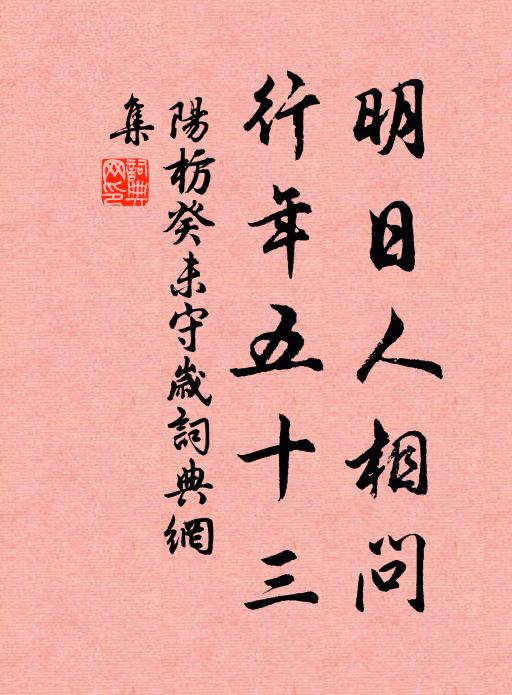 明日人相問
行年五十三
陽枋癸未守歲詞典網
集
詞典
网印